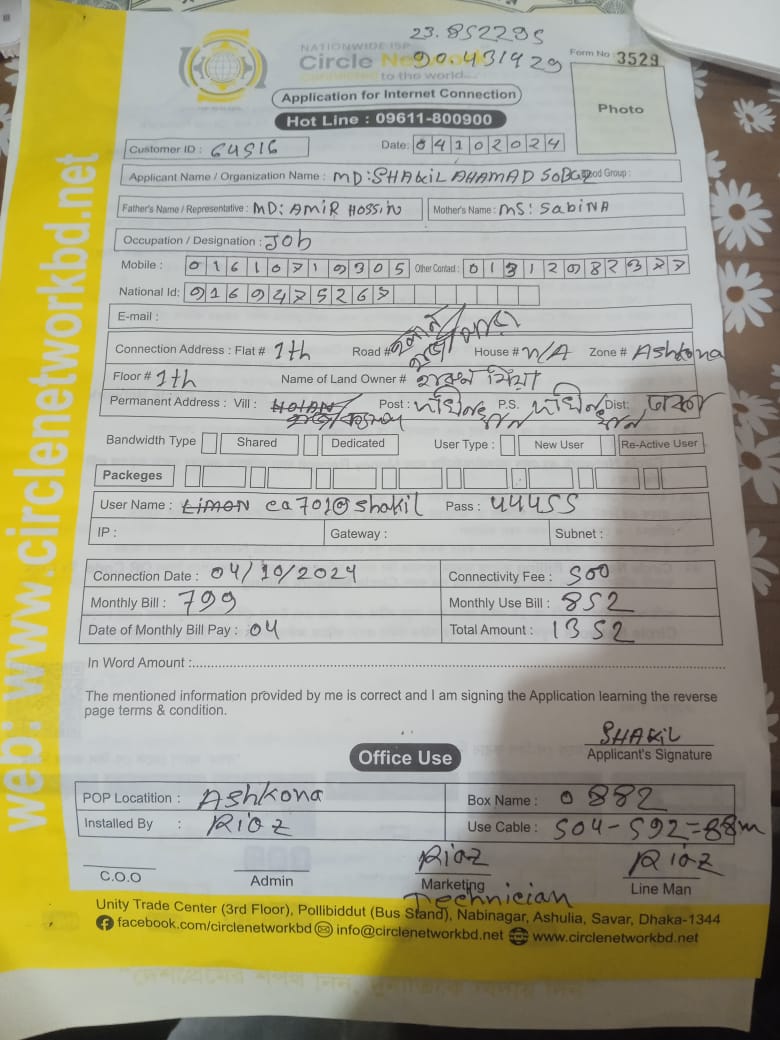 23.852295
90.431929
NATIONWIDE ISP
Circle Network
to the world...
Form No : 3529
Application for Internet Connection
Photo
Hot Line : 09611-800900
Customer ID : 64516
Date: 04102024
Applicant Name / Organization Name : MD:SHAKIL AHAMAD SOBUZ Blood Group :
Father's Name / Representative : MD: AMIR HOSSIN Mother's Name : MS: SabiNA
Occupation / Designation : Job
Mobile : 01610719305 Other Contact : 01312982377
National Id: 9169475267
E-mail :
Connection Address : Flat # 1th Road # House # N/A Zone # Ashkona
Floor # 1th Name of Land Owner # মিয়া
Permanent Address : Vill : Post : P.S. Dist: ঢাকা
Bandwidth Type Shared Dedicated User Type : New User Re-Active User
Packeges
User Name : LiMON ca701@shakil Pass : 44455
IP : Gateway : Subnet :
Connection Date : 04/10/2024 Connectivity Fee : 500
Monthly Bill : 799 Monthly Use Bill : 852
Date of Monthly Bill Pay : 04 Total Amount : 1352
In Word Amount :
The mentioned information provided by me is correct and I am signing the Application learning the reverse
page terms & condition.
SHAKiL
Applicant's Signature
Office Use
POP Locatition : Ashkona Box Name : 0882
Installed By : Riaz Use Cable : 504-592=88m
Riaz Riaz
C.O.O Admin Marketing Line Man
Technician
Unity Trade Center (3rd Floor), Pollibiddut (Bus Stand), Nabinagar, Ashulia, Savar, Dhaka-1344
facebook.com/circlenetworkbd info@circlenetworkbd.net www.circlenetworkbd.net
web: www.circlenetworkbd.net